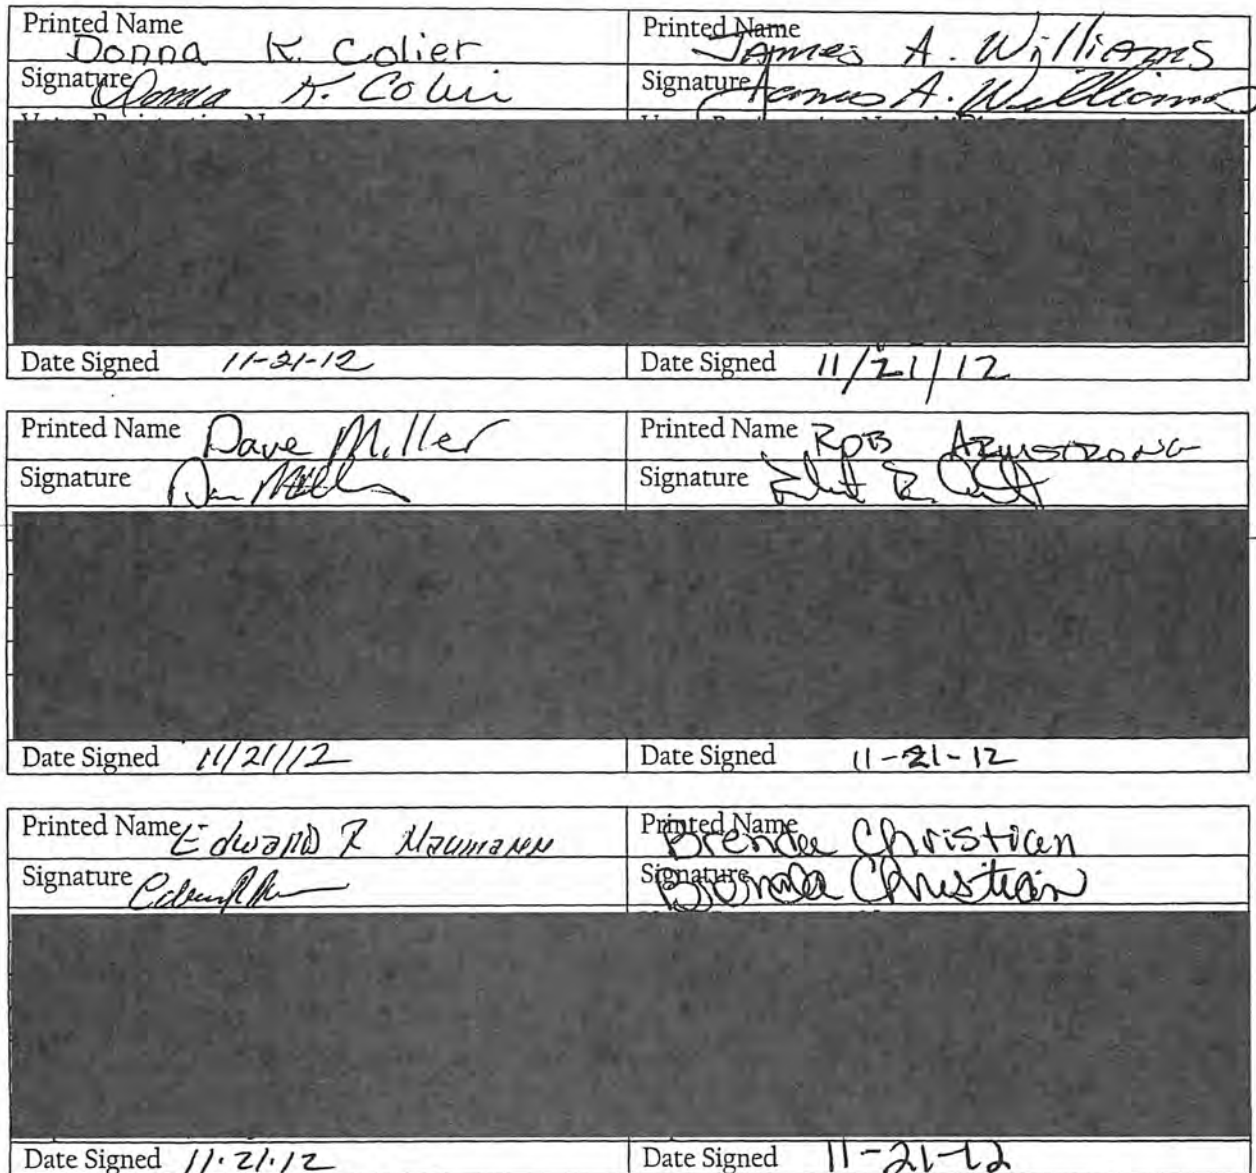 Printed Name Donna K. Colier
Signature Donna K. Colier
Date Signed 11-21-12
Printed Name James A. Williams
Signature James A. Williams
Date Signed 11/21/12
Printed Name Dave Miller
Signature Dave Miller
Date Signed 11/21/12
Printed Name ROB ARMSTRONG
Signature
Date Signed 11-21-12
Printed Name Edward R Naumann
Signature
Date Signed 11.21.12
Printed Name Brenda Christian
Signature Brenda Christian
Date Signed 11-21-12